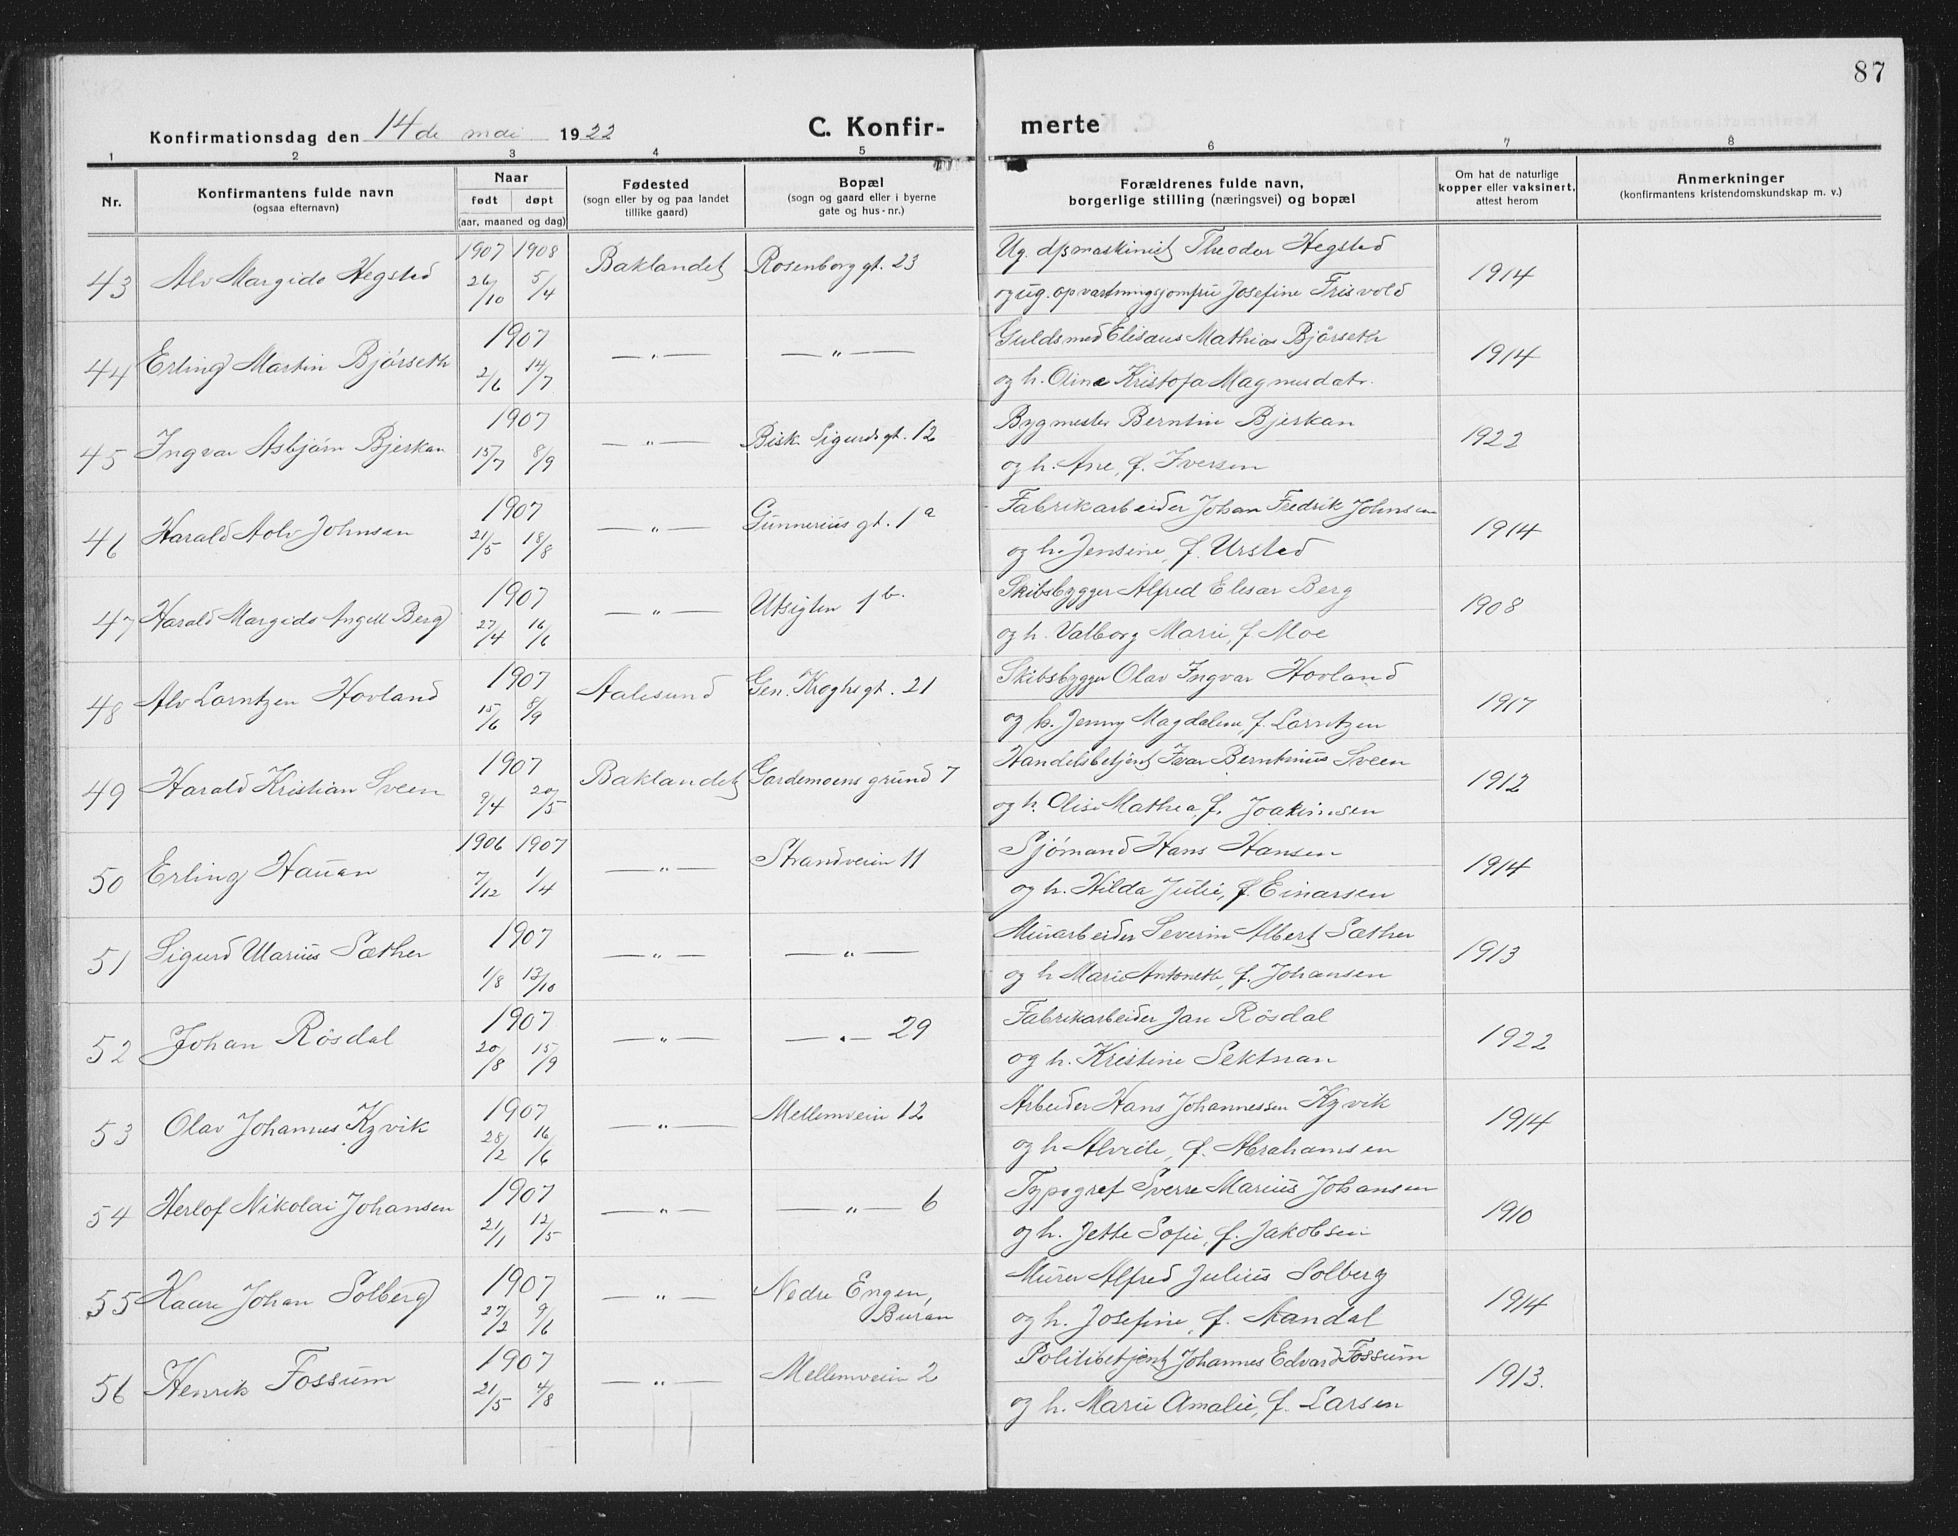 87
Konfirmationsdag den 14de mai 1922 C. Konfirmerte
1 2 3 4 5 6 7 8
Nr. Konfirmantens fulde navn (ogsaa efternavn) Naar født døpt (aar, maaned og dag) Fødested (sogn eller by og paa landet tillike gaard) Bopæl (sogn og gaard eller i byerne gate og hus-nr.) Forældrenes fulde navn, borgerlige stilling (næringsvei) og bopæl Om hat de naturlige kopper eller vaksinert, attest herom Anmerkninger (konfirmantens kristendomskundskap m. v.)
43 Alv Margido Hegsted 1907 26/10 1908 5/4 Baklandet Rosenborg gt. 23 Ug. dpsmaskinist Theodor Hegsted 1914
og ug. opvartningsjomfru Josefine Frisvold
44 Erling Martin Bjørseth 1907 2/6 14/7 — " — — " — Guldsmed Elisæus Mathias Bjørseth 1914
og h. Oline Kristofa Magnusdatr.
45 Ingvar Asbjørn Bjerkan 1907 15/7 8/9 — " — Bisk. Sigurds gt. 12 Bygmester Berntin Bjerkan 1922
og h. Ane, f. Iversen
46 Harald Aolv Johnsen 1907 21/5 18/8 — " — Gunnerius gt. 1a Fabrikarbeider Johan Fredrik Johnsen 1914
og h. Jensine, f. Ursted
47 Harald Margido Angell Berg 1907 27/4 16/6 — " — Utsigten 1b. Skibsbygger Alfred Elesar Berg 1908
og h. Valborg Marie, f. Moe
48 Alv Lorntzen Hovland 1907 15/6 8/9 Aalesund Gen. Kroghs gt. 21 Skibsbygger Olav Ingvar Hovland 1917
og h. Jenny Magdalene, f. Lorntzen
49 Harald Kristian Sveen 1907 9/4 20/5 Baklandet Gardemoens grund 7 Handelsbetjent Ivar Berntinius Sveen 1912
og h. Olise Mathea, f. Joakimsen
50 Erling Hauan 1906 7/12 1907 1/4 — " — Strandveien 11 Sjømand Hans Hansen 1914
og h. Hilda Julie, f. Einarsen
51 Sigurd Marius Sæther 1907 1/8 13/10 — " — — " — Murarbeider Severin Albert Sæther 1913
og h. Marie Antonette, f. Johansen
52 Johan Røsdal 1907 20/8 15/9 — " — — " — 29 Fabrikarbeider Jan Røsdal 1922
og h. Kristine Sektnan
53 Olav Johannes Kyvik 1907 28/2 16/6 — " — Mellemveien 12 Arbeider Hans Johannessen Kyvik 1914
og h. Alvide, f. Abrahamsen
54 Herlof Nikolai Johansen 1907 21/1 12/5 — " — — " — 6 Typograf Sverre Marius Johansen 1910
og h. Jette Sofie, f. Jakobsen
55 Kaare Johan Solberg 1907 27/2 9/6 — " — Nedre Engen, Buran Murer Alfred Julius Solberg 1914
og h. Josefine, f. Aandal
56 Henrik Fossum 1907 21/5 4/8 — " — Mellemveien 2 Politibetjent Johannes Edvard Fossum 1913.
og h. Marie Amalie, f. Larsen